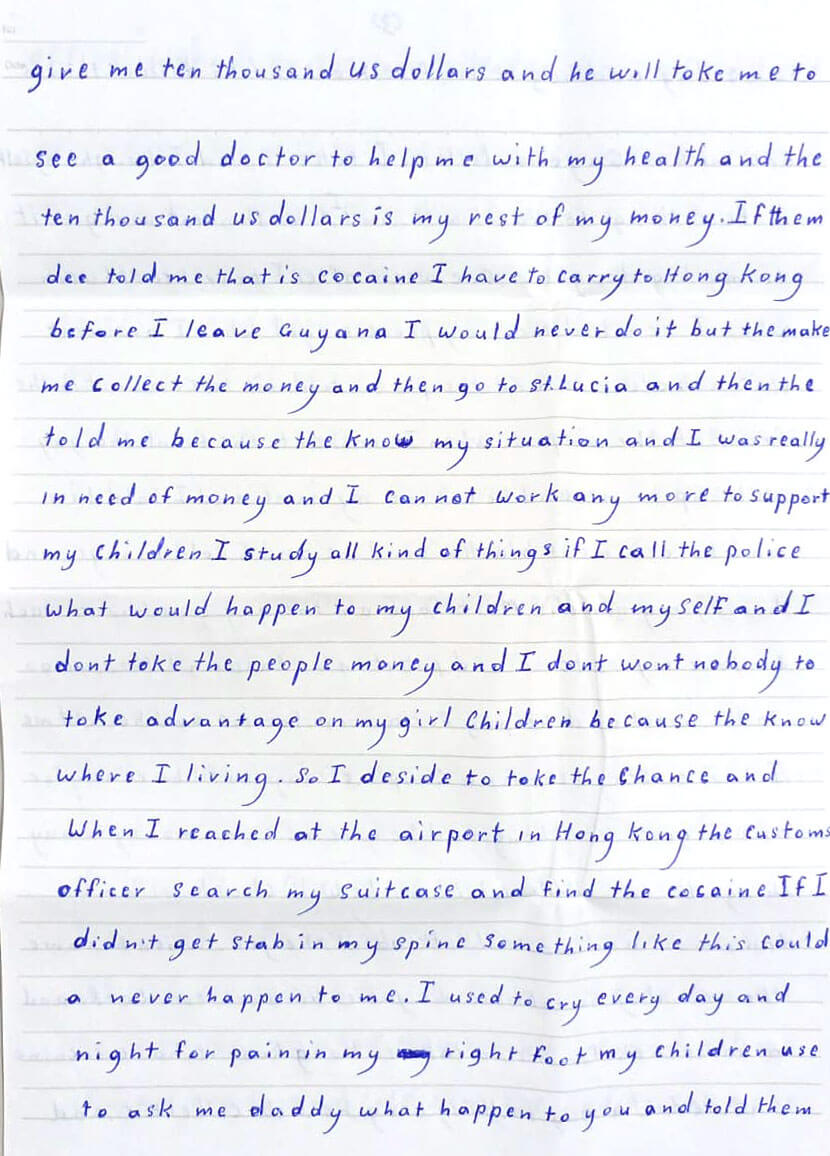 give me ten thousand us dollars and he will take me to
see a good doctor to help me with my health and the
ten thousand us dollars is my rest of my money. If them
dee told me that is cocaine I have to carry to Hong Kong
before I leave Guyana I would never do it but the make
me collect the money and then go to St. Lucia and then the
told me because the know my situation and I was really
in need of money and I can not work any more to support
my children I study all kind of things if I call the police
what would happen to my children and my self and I
dont take the people money and I dont wont nobody to
take advantage on my girl children because the know
where I living. So I deside to take the chance and
When I reached at the airport in Hong Kong the customs
officer search my suitcase and find the cocaine If I
didn't get stab in my spine something like this could
a never happen to me. I used to cry every day and
night for pain in my right foot my children use
to ask me daddy what happen to you and told them